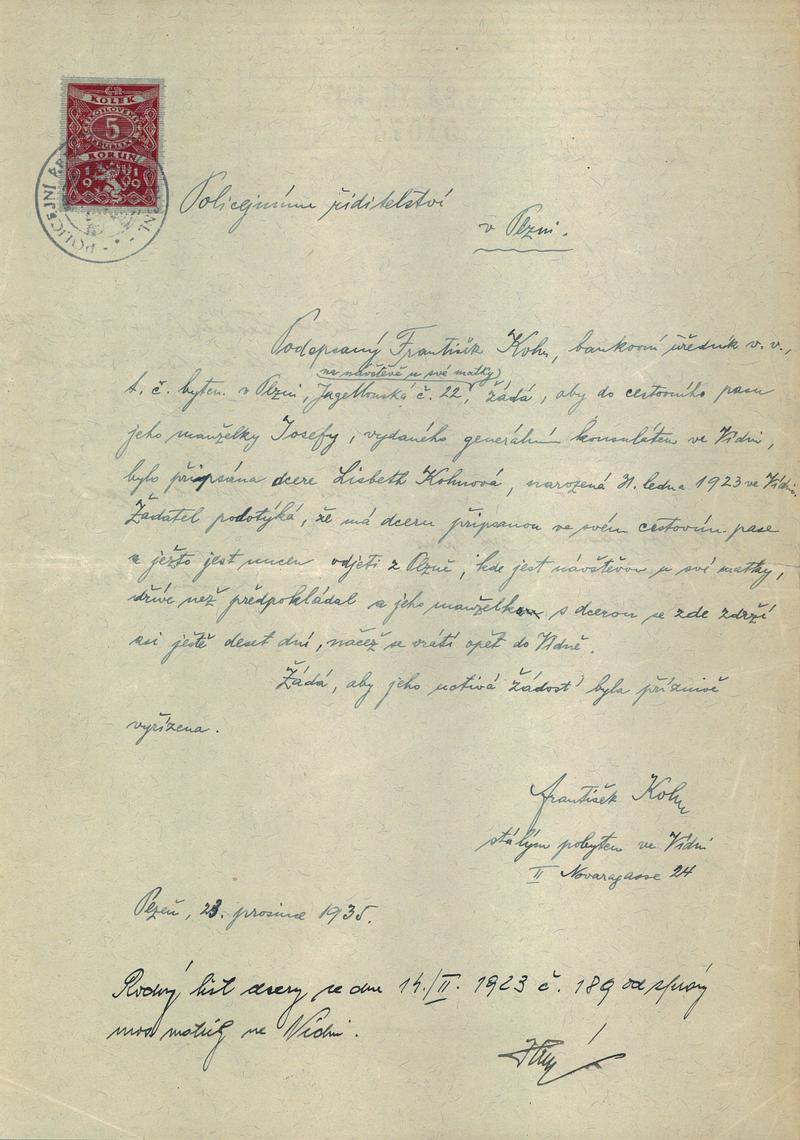 KOLEK
5
KORUN
1919
POLICEJNÍ
Policejnímu ředitelství
v Plzni.
Podepsaný František Kohn, bankovní úředník v. v.,
na návštěvě u své matky
t. č. bytem v Plzni, Jagellonská č. 22, žádá, aby do cestovního pasu
jeho manželky Josefy, vydaného generální konsulátem ve Vídni,
bylo připsána dcera Lisbeth Kohnová, narozená 31. ledna 1923 ve Vídni.
Žadatel podotýká, že má dceru připsanou ve svém cestovním pase
a ježto jest nucen odjeti z Plzně, kde jest návštěvou u své matky,
dříve než předpokládal a jeho manželka s dcerou se zde zdrží
asi ještě deset dní, načež se vrátí opět do Vídně.
Žádá, aby jeho uctivá žádost byla příznivě
vyřízena.
František Kohn
stálým pobytem ve Vídni
II Novaragasse 24
Plzeň, 23. prosince 1935.
Rodný list dcery ze dne 14./II. 1923 č. 189 od správy
matrik ve Vídni.